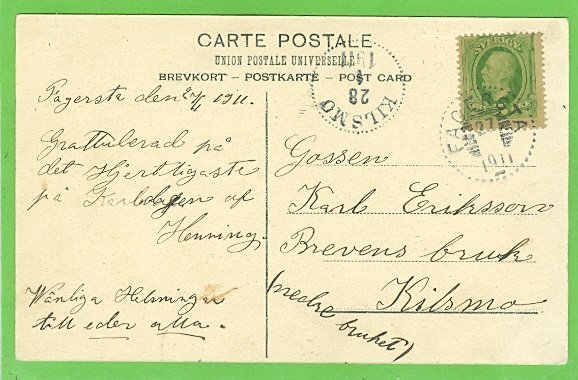 CARTE POSTALE
UNION POSTALE UNIVERSELLE
BREVKORT – POSTKARTE – POST CARD
Fagersta den 1911.
Grattulerad på
det Hjertligaste
på Karldagen af
Henning.
Wänliga Helsningar
till eder alla.
Gossen
Karl Eriksson
Brevens bruk
Kilsmo
(nedre bruket)
SVERIGE
KILSMO
28
1
1911
1911